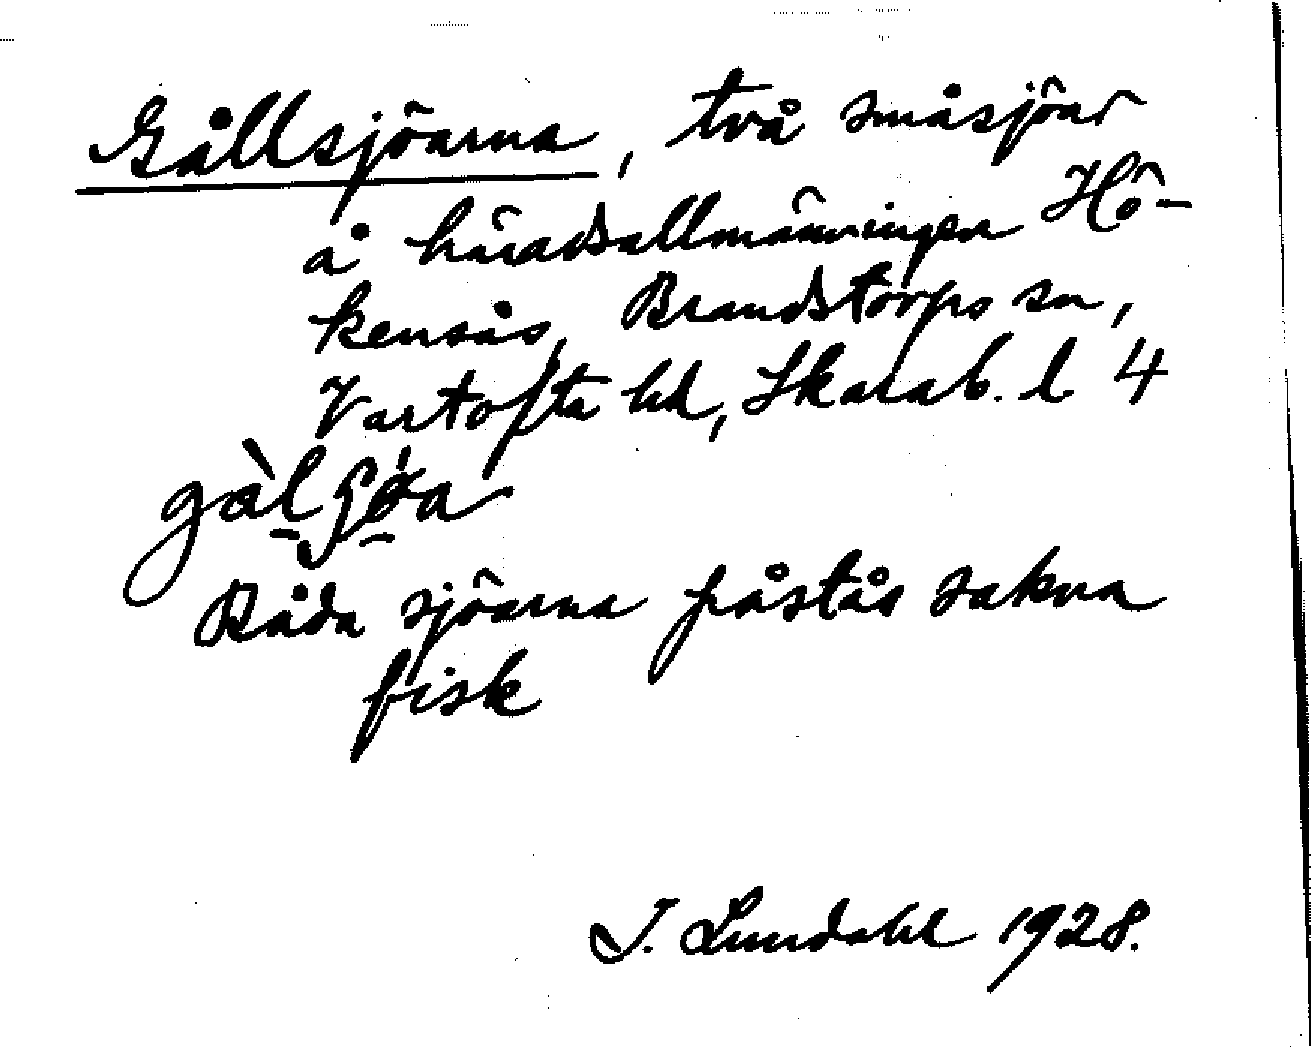 Gållsjöarna, två småsjöar
å häradsallmänningen Hö-
kensås, Brandstorps sn,
Vartofta hd, Skarab. l 4
Båda sjöarna påstås sakna
fisk
I. Lundahl 1928.